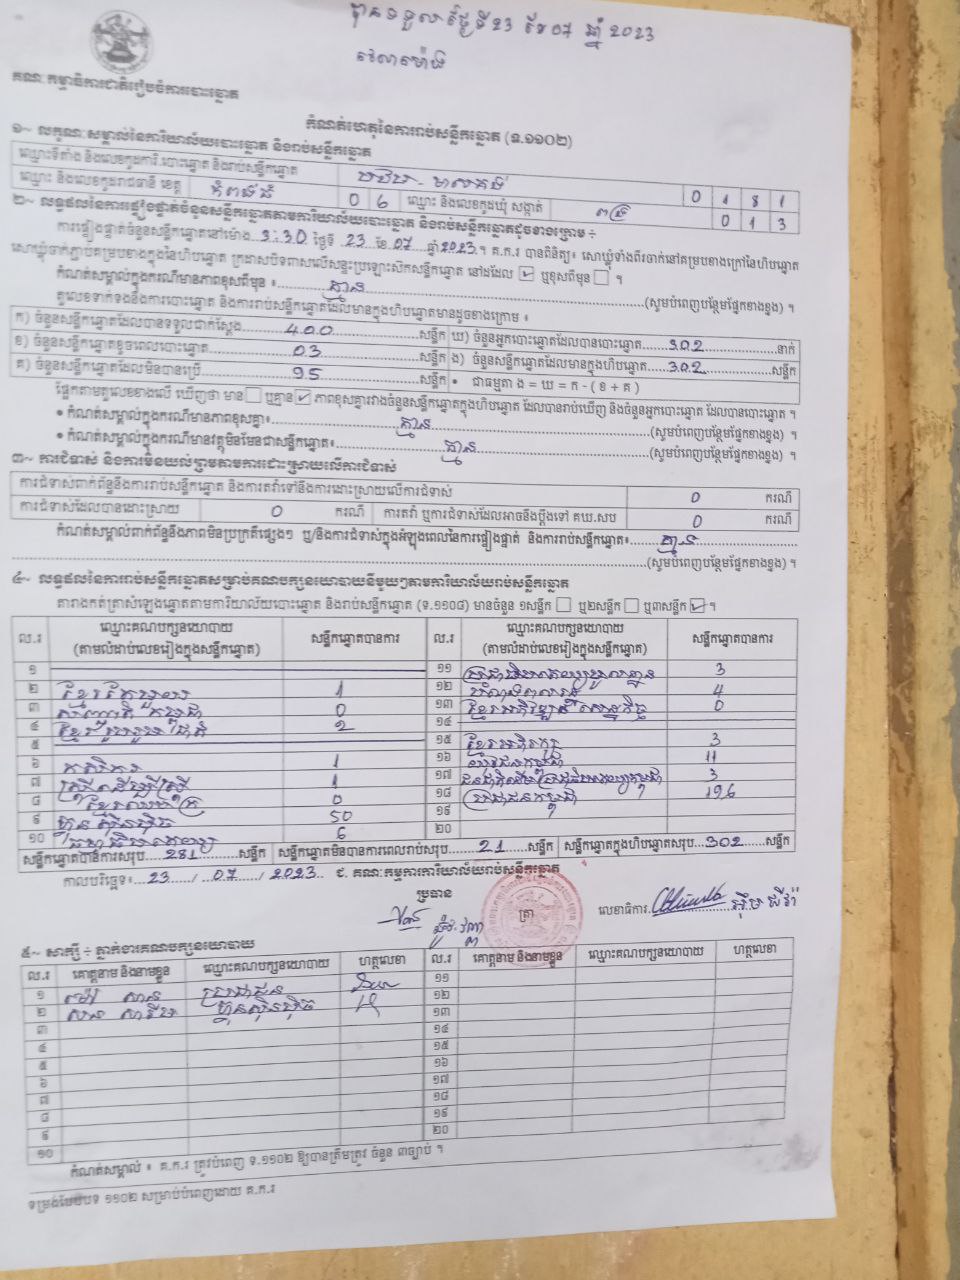 បានទទួលថ្ងៃទី23 ខែ07 ឆ្នាំ 2023
វេលាម៉ោង
គណៈកម្មាធិការជាតិរៀបចំការបោះឆ្នោត
កំណត់ហេតុនៃការរាប់សន្លឹកឆ្នោត (ទ.១១០២)
១~ លក្ខណៈសម្គាល់នៃការិយាល័យបោះឆ្នោត និងរាប់សន្លឹកឆ្នោត
ឈ្មោះទីតាំង និងលេខកូដការិ.បោះឆ្នោត និងរាប់សន្លឹកឆ្នោត 0 1 8 1
ឈ្មោះ និងលេខកូដរាជធានី ខេត្ត កំពង់ធំ 0 6 ឈ្មោះ និងលេខកូដឃុំ សង្កាត់ 0 1 3
២~ លទ្ធផលនៃការផ្ទៀងផ្ទាត់ចំនួនសន្លឹកឆ្នោតតាមការិយាល័យបោះឆ្នោត និងរាប់សន្លឹកឆ្នោតដូចខាងក្រោម ÷
ការផ្ទៀងផ្ទាត់ចំនួនសន្លឹកឆ្នោតនៅម៉ោង 3:30 ថ្ងៃទី 23 ខែ 07 ឆ្នាំ 2023 ។ គ.ក.រ បានពិនិត្យ៖ សោឃ្លុំទាំងពីរចាក់នៅគម្របខាងក្រៅនៃហិបឆ្នោត
សោឃ្លុំចាក់ភ្ជាប់គម្របខាងក្នុងនៃហិបឆ្នោត ក្រដាសបិទពាសលើសន្ទះប្រឡោះស៊កសន្លឹកឆ្នោត នៅដដែល ✓ ឬខុសពីមុន ។
កំណត់សម្គាល់ក្នុងករណីមានភាពខុសពីមុន ៖ គ្មាន (សូមបំពេញបន្ថែមផ្នែកខាងខ្នង) ។
តួលេខទាក់ទងនឹងការបោះឆ្នោត និងការរាប់សន្លឹកឆ្នោតដែលមានក្នុងហិបឆ្នោតមានដូចខាងក្រោម ៖
ក) ចំនួនសន្លឹកឆ្នោតដែលបានទទួលជាក់ស្តែង 400 សន្លឹក ឃ) ចំនួនអ្នកបោះឆ្នោតដែលបានបោះឆ្នោត 302 នាក់
ខ) ចំនួនសន្លឹកឆ្នោតខូចពេលបោះឆ្នោត 03 សន្លឹក ង) ចំនួនសន្លឹកឆ្នោតដែលមានក្នុងហិបឆ្នោត 302 សន្លឹក
គ) ចំនួនសន្លឹកឆ្នោតដែលមិនបានប្រើ 95 សន្លឹក • ជាធម្មតា ង = ឃ = ក - ( ខ + គ )
ផ្អែកតាមតួលេខខាងលើ ឃើញថា មាន ឬគ្មាន ✓ ភាពខុសគ្នារវាងចំនួនសន្លឹកឆ្នោតក្នុងហិបឆ្នោត ដែលបានរាប់ឃើញ និងចំនួនអ្នកបោះឆ្នោត ដែលបានបោះឆ្នោត ។
• កំណត់សម្គាល់ក្នុងករណីមានភាពខុសគ្នា៖ គ្មាន (សូមបំពេញបន្ថែមផ្នែកខាងខ្នង) ។
• កំណត់សម្គាល់ក្នុងករណីមានវត្ថុមិនមែនជាសន្លឹកឆ្នោត៖ គ្មាន (សូមបំពេញបន្ថែមផ្នែកខាងខ្នង) ។
៣~ ការជំទាស់ និងការមិនយល់ព្រមតាមការដោះស្រាយលើការជំទាស់
ការជំទាស់ពាក់ព័ន្ធនឹងការរាប់សន្លឹកឆ្នោត និងការតវ៉ាទៅនឹងការដោះស្រាយលើការជំទាស់ 0 ករណី
ការជំទាស់ដែលបានដោះស្រាយ 0 ករណី ការតវ៉ា ឬការជំទាស់ដែលអាចនឹងប្តឹងទៅ គឃ.សប 0 ករណី
កំណត់សម្គាល់ពាក់ព័ន្ធនឹងភាពមិនប្រក្រតីផ្សេងៗ ឬ/និងការជំទាស់ក្នុងអំឡុងពេលនៃការផ្ទៀងផ្ទាត់ និងការរាប់សន្លឹកឆ្នោត៖ គ្មាន
(សូមបំពេញបន្ថែមផ្នែកខាងខ្នង) ។
៤~ លទ្ធផលនៃការរាប់សន្លឹកឆ្នោតសម្រាប់គណបក្សនយោបាយនីមួយៗតាមការិយាល័យរាប់សន្លឹកឆ្នោត
តារាងកត់ត្រាសំឡេងឆ្នោតតាមការិយាល័យបោះឆ្នោត និងរាប់សន្លឹកឆ្នោត (ទ.១១០៨) មានចំនួន ១សន្លឹក ឬ២សន្លឹក ឬ៣សន្លឹក ✓ ។
ល.រ ឈ្មោះគណបក្សនយោបាយ (តាមលំដាប់លេខរៀងក្នុងសន្លឹកឆ្នោត) សន្លឹកឆ្នោតបានការ ល.រ ឈ្មោះគណបក្សនយោបាយ (តាមលំដាប់លេខរៀងក្នុងសន្លឹកឆ្នោត) សន្លឹកឆ្នោតបានការ
១ ១១ 3
២ ខ្មែរ 1 ១២ 4
៣ 0 ១៣ ខ្មែរអភិវឌ្ឍន៍សេដ្ឋកិច្ច 0
៤ ខ្មែររួបរួមជាតិ 2 ១៤
៥ ១៥ ខ្មែរអភិរក្ស 3
៦ កសិករ 1 ១៦ យុវជនកម្ពុជា 11
៧ ស្ត្រីដើម្បីស្ត្រី 1 ១៧ 3
៨ 0 ១៨ ប្រជាជនកម្ពុជា 196
៩ ហ៊្វុនស៊ិនប៉ិច 50 ១៩
១០ 6 ២០
សន្លឹកឆ្នោតបានការសរុប 281 សន្លឹក សន្លឹកឆ្នោតមិនបានការពេលរាប់សរុប 21 សន្លឹក សន្លឹកឆ្នោតក្នុងហិបឆ្នោតសរុប 302 សន្លឹក
កាលបរិច្ឆេទ៖ 23 / 07 / 2023 ៩. គណៈកម្មការការិយាល័យរាប់សន្លឹកឆ្នោត
ប្រធាន ត្រា លេខាធិការ
៥~ សាក្សី ÷ ភ្នាក់ងារគណបក្សនយោបាយ
ល.រ គោត្តនាម និងនាមខ្លួន ឈ្មោះគណបក្សនយោបាយ ហត្ថលេខា ល.រ គោត្តនាម និងនាមខ្លួន ឈ្មោះគណបក្សនយោបាយ ហត្ថលេខា
១ ប្រជាជន ១១
២ ហ៊្វុនស៊ិនប៉ិច ១២
៣ ១៣
៤ ១៤
៥ ១៥
៦ ១៦
៧ ១៧
៨ ១៨
៩ ១៩
១០ ២០
កំណត់សម្គាល់ ៖ គ.ក.រ ត្រូវបំពេញ ទ.១១០២ ឱ្យបានត្រឹមត្រូវ ចំនួន ៣ច្បាប់ ។
ទម្រង់បែបបទ ១១០២ សម្រាប់បំពេញដោយ គ.ក.រ